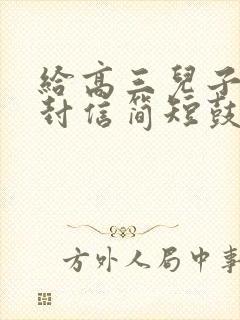 給高三兒子
封信簡短鼓
方外人局中事